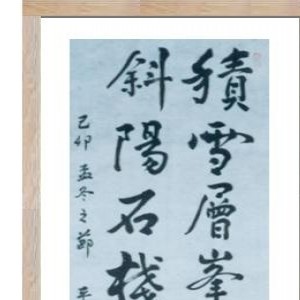 積雪層峯
斜陽石棧
己卯孟冬之節